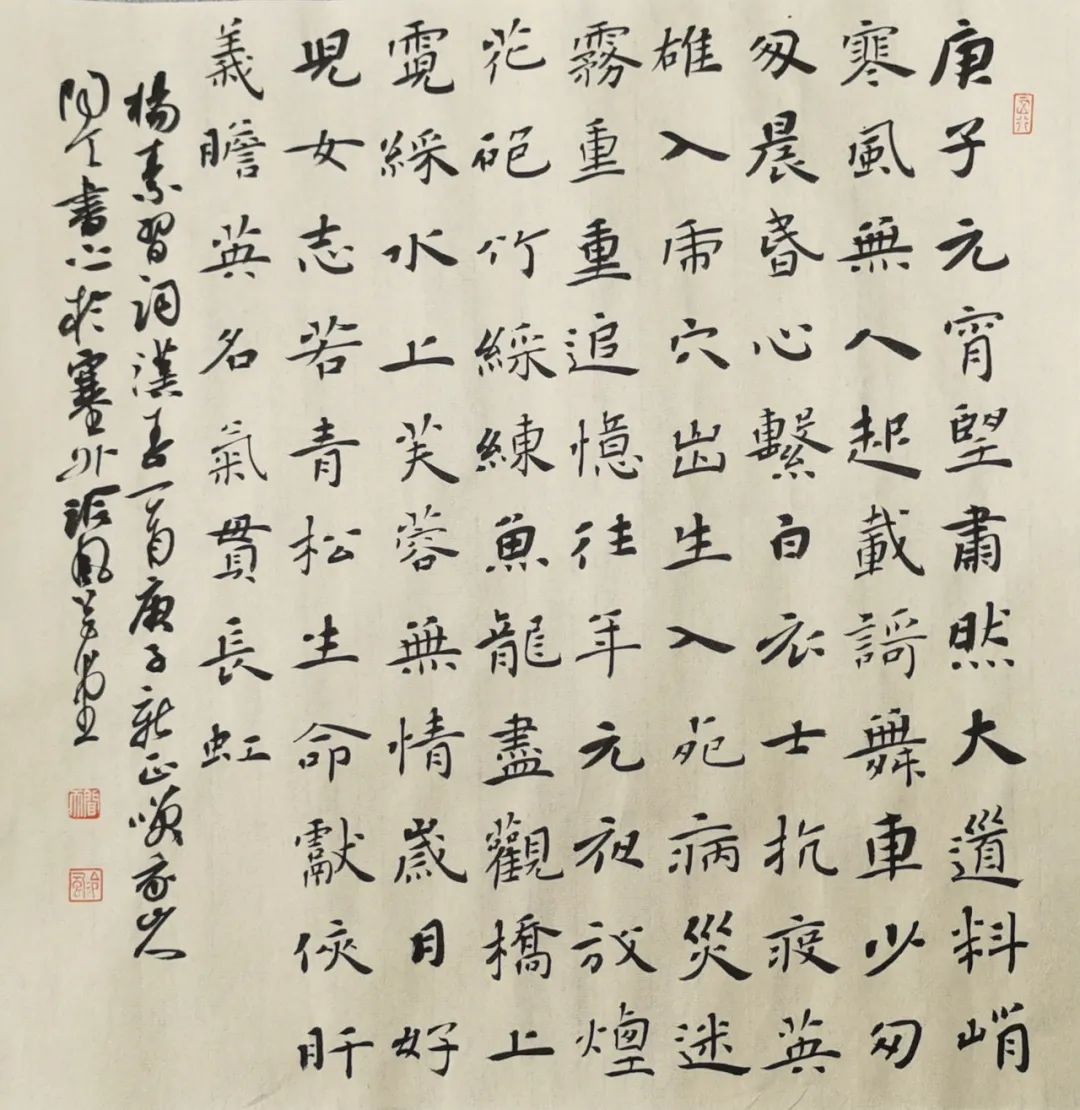 庚子元宵望肅然大道料峭
寒風無人起載謌舞車少匆
匆晨昏心繫白衣士抗疫英
雄入虎穴出生入死病災迷
霧重重追憶往年元夜放煙
花砲竹綵練魚龍盡觀橋上
霓綵水上芙蓉無情歲月好
兒女志若青松生命獻俠肝
義膽英名氣貫長虹
楊素習詞漢春一首庚子新正
書於塞外